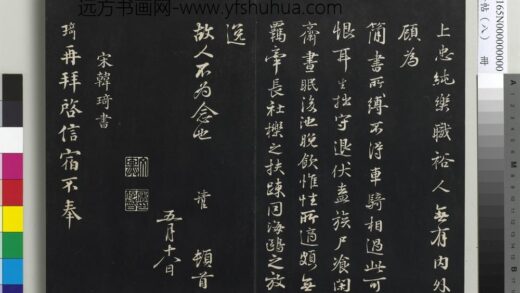 远方书画网-www.yfshuhua.com
上忠純樂職裕人無有内外
顧為
簡書所縛不淂車騎相過此可
恨耳生拙守退伏蓋族尸飱閑
齋晝眠後池晚飲惟性所適頗無
羈牽長社櫟之扶踈同海鷗之放
逸
故人不為念也
讙頓首
五月十八日
宋韓琦書
琦再拜啓信宿不奉
165N000000000
帖(八)冊